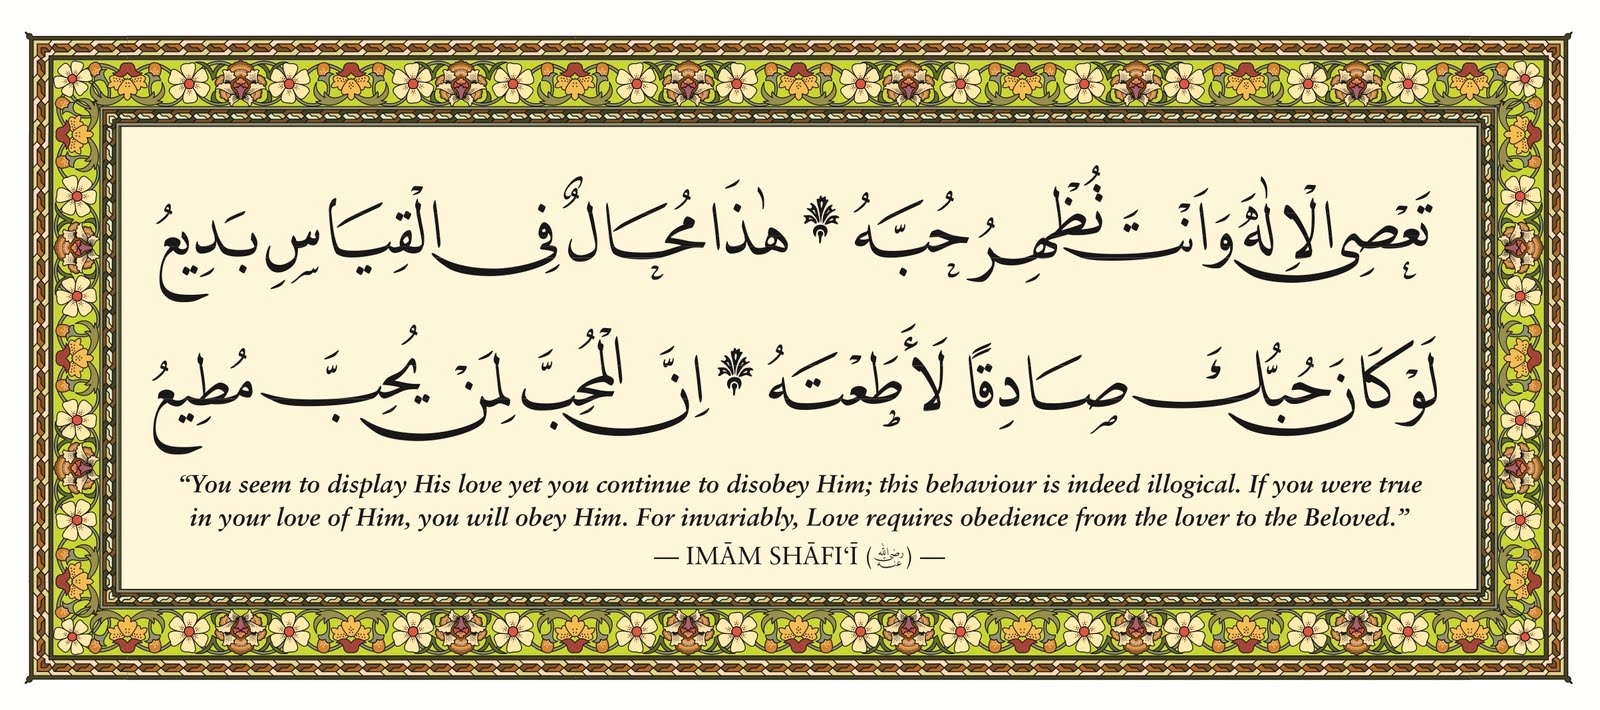 تَعْصِى الْاِلٰهَ وَاَنْتَ تُظْهِرُ حُبَّهُ ❀ هٰذَا مُحَالٌ فِى الْقِيَاسِ بَدِيعُ
لَوْ كَانَ حُبُّكَ صَادِقًا لَأَطَعْتَهُ ❀ اِنَّ الْمُحِبَّ لِمَنْ يُحِبُّ مُطِيعُ
“You seem to display His love yet you continue to disobey Him; this behaviour is indeed illogical. If you were true
in your love of Him, you will obey Him. For invariably, Love requires obedience from the lover to the Beloved.”
— IMĀM SHĀFI‘Ī (رضي الله عنه) —